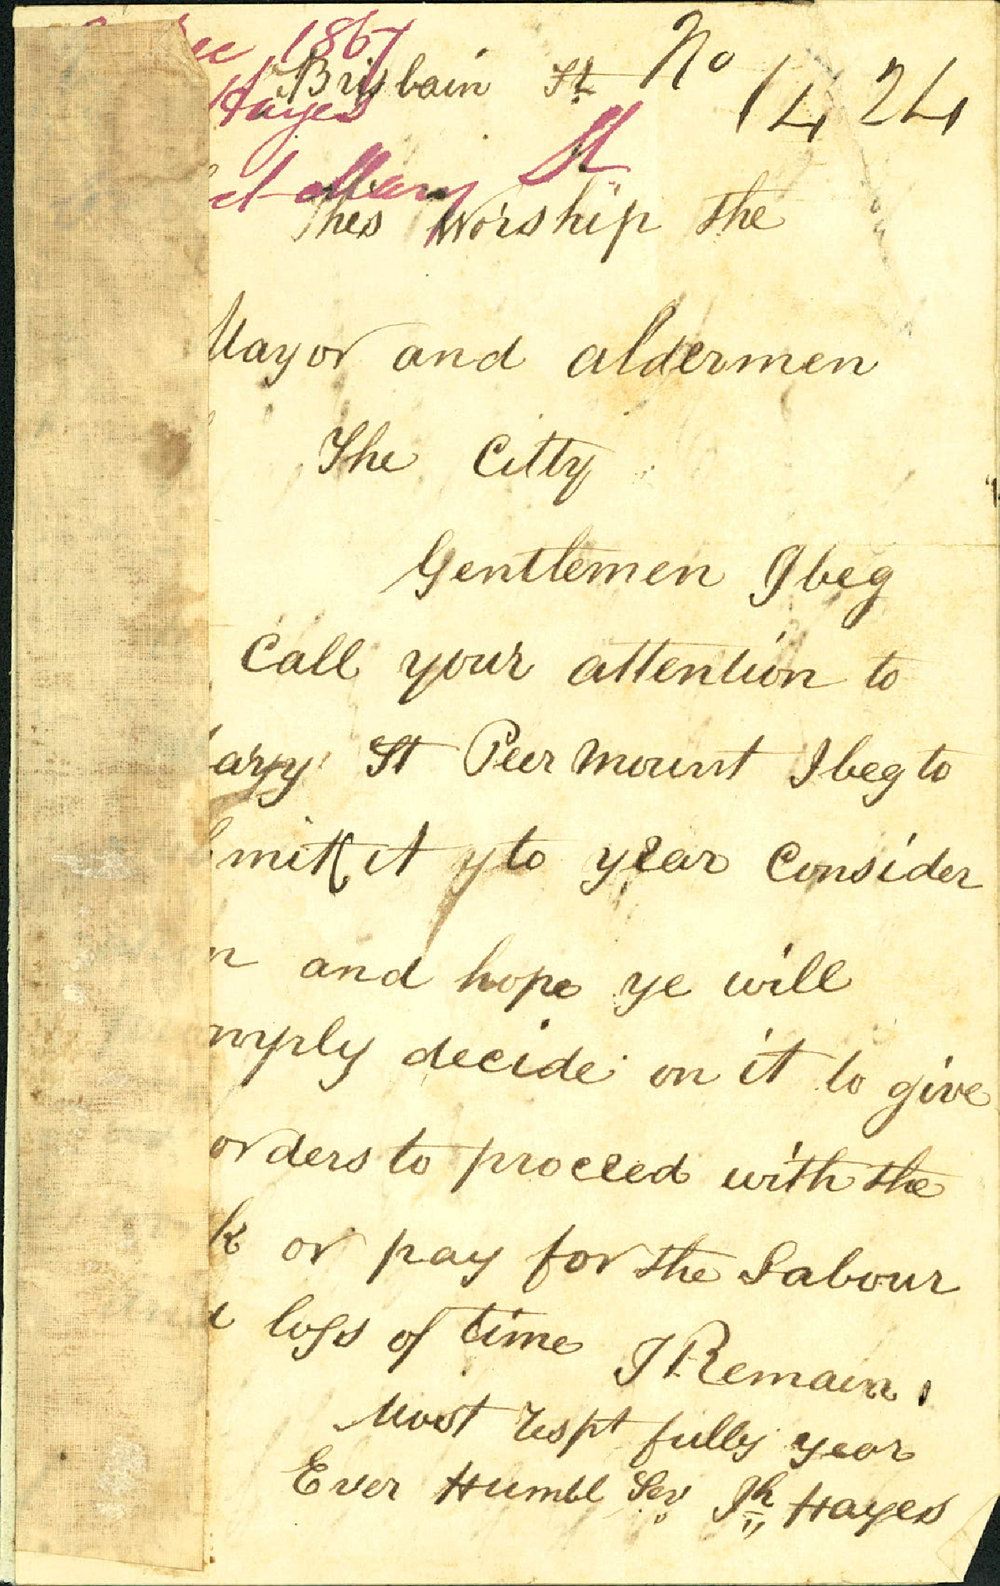 1867
Brisbain St No 1424
Hayes
Mary St
hes Worship the
Mayor and aldermen
The Citty
Gentlemen I beg
Call your attention to
ary St Peer mount I beg to
mitt it yto year Consider
n and hope ye will
mply decide on it to give
orders to proceed with the
k or pay for the Labour
loss of time I Remain
Most respt fully year
Ever Humbl Serv Jh Hayes